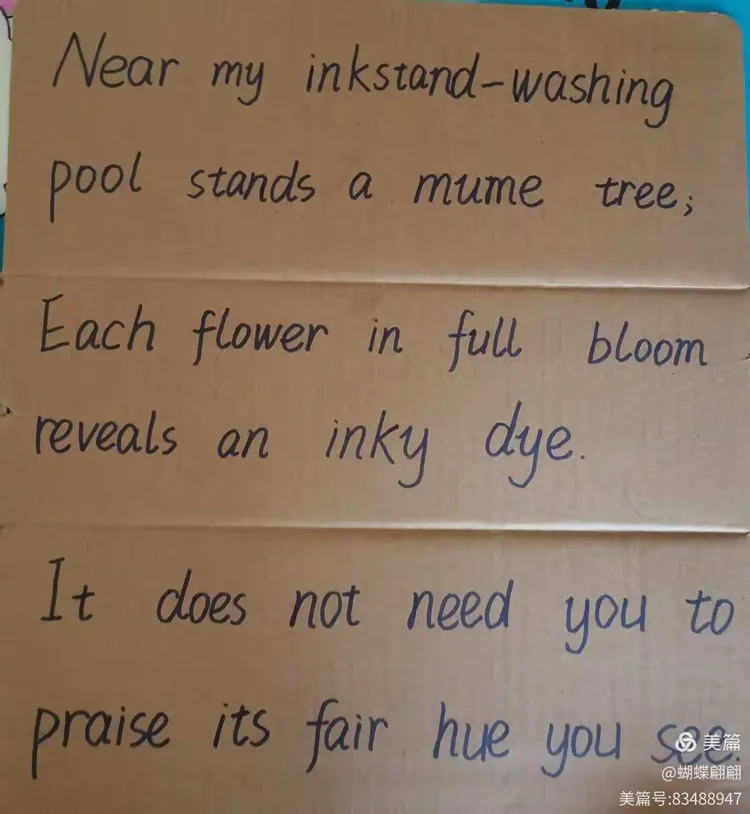 Near my inkstand-washing
pool stands a mume tree;
Each flower in full bloom
reveals an inky dye.
It does not need you to
praise its fair hue you see.
美篇
@蝴蝶翩翩
美篇号:83488947